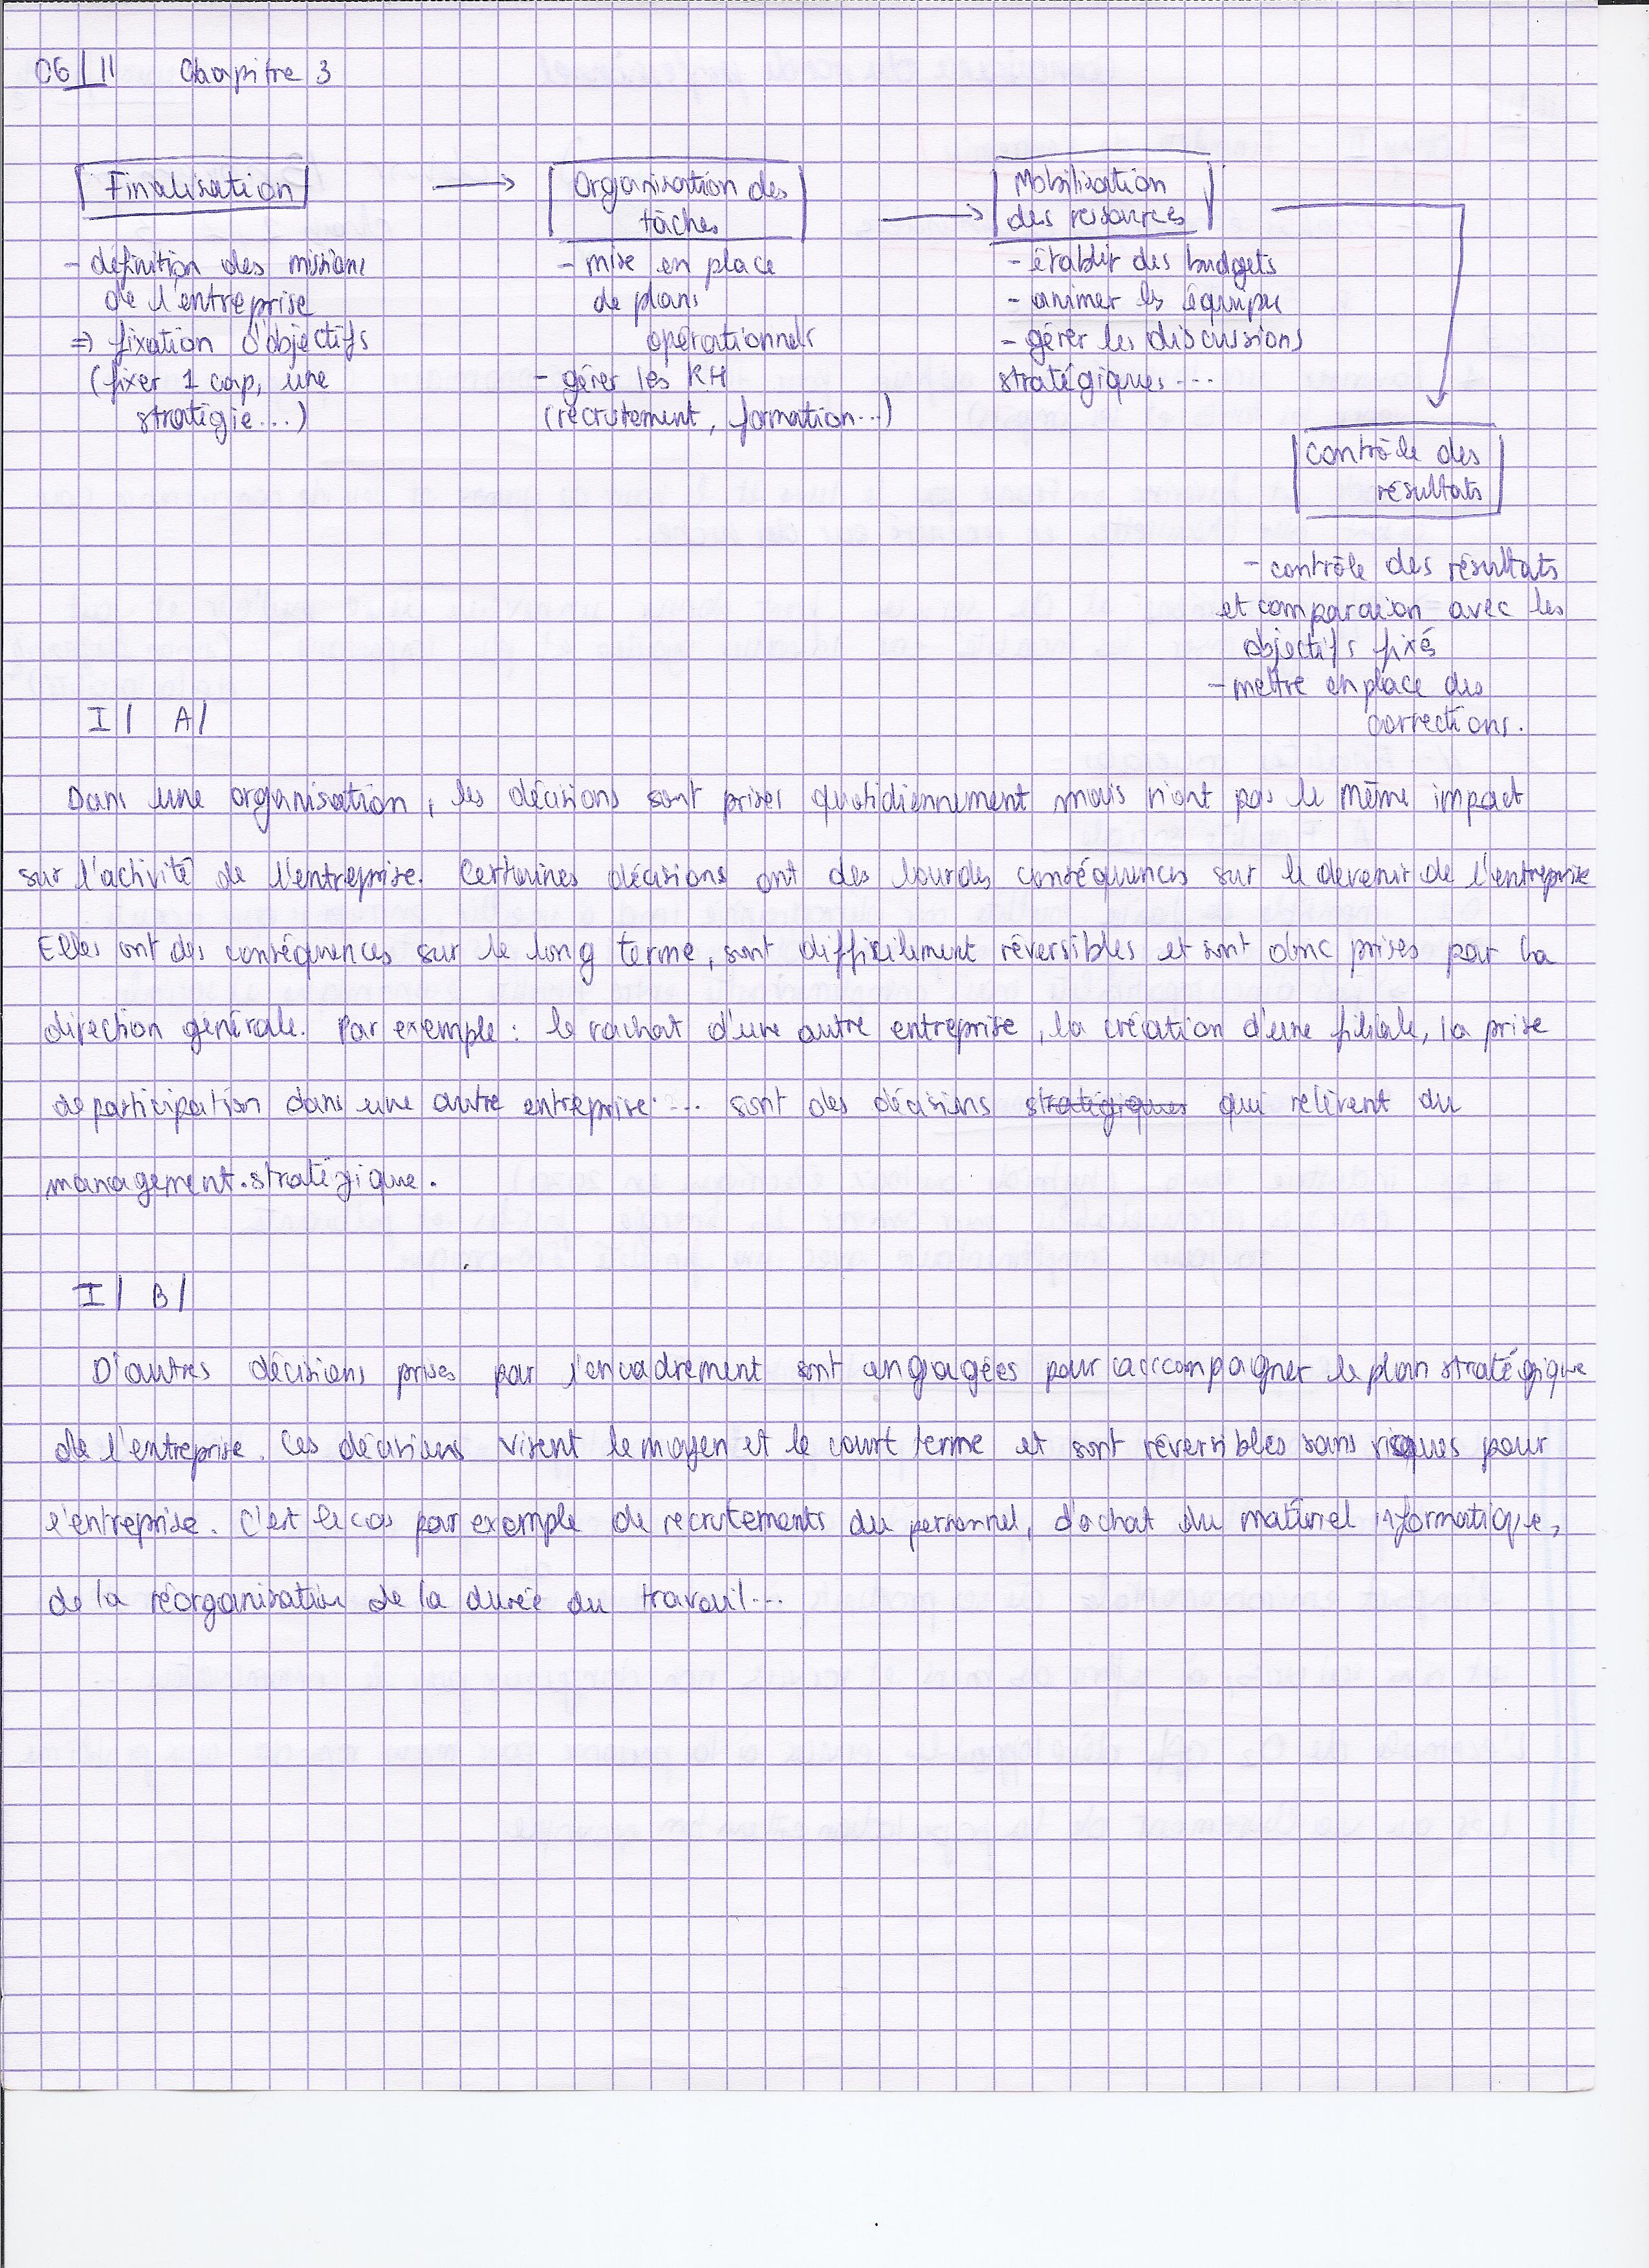 06/11 Chapitre 3
Finalisation
- définition des missions
de l'entreprise
⇒ fixation d'objectifs
(fixer 1 cap, une
stratégie...)
Organisation des
tâches
- mise en place
de plans
opérationnels
- gérer les RH
(recrutement, formation...)
Mobilisation
des ressources
- établir des budgets
- animer les équipes
- gérer les discussions
stratégiques...
contrôle des
résultats
- contrôle des résultats
et comparaion avec les
objectifs fixés
- mettre en place des
corrections.
I/ A/
Dans une organisation, les décisions sont prises quotidiennement mais n'ont pas le même impact
sur l'activité de l'entreprise. Certaines décisions ont des lourdes conséquences sur le devenir de l'entreprise
Elles ont des conséquences sur le long terme, sont difficilement réversibles et sont donc prises par la
direction générale. Par exemple : le rachat d'une autre entreprise, la création d'une filiale, la prise
de participation dans une autre entreprise... sont des décisions stratégiques qui relèvent du
management.stratégique.
I/ B/
D'autres décisions prises par l'encadrement sont engagées pour accompagner le plan stratégique
de l'entreprise. Ces décisions visent le moyen et le court terme et sont réversibles sans risques pour
l'entreprise. C'est le cas par exemple de recrutements du personnel, d'achat du matériel informatique,
de la réorganisation de la durée du travail...